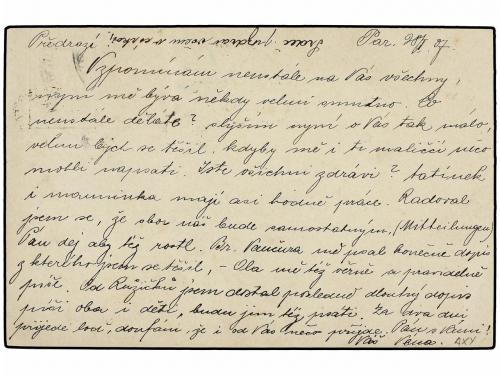 Předrazí Srdeč. pozdrav všem Par. 28/I 87.
Vzpomínám neustále na Vás všechny,
mně bývá někdy velmi smutno. Co
neustále děláte? slyším nyní o Vás tak málo,
velmi bych se těšil, kdyby mě i ti maličcí něco
mohli napsati. Jste všichni zdrávi? tatínek
i maminka mají asi hodně práce. Radoval
jsem se, že sbor náš bude samostatným, (Mitteilungen)
Pán dej aby též rostl. Br. Vančura mě psal konečně dopis
z kterého jsem se těšil, - Ola mě též věrně a pravidelně
píše. Od Růžičků jsem dostal posledně dlouhý dopis
píší oba i děti, budu jim též psáti. Za dva dni
přijede loď, doufám, že i od Vás něco přijde. Pán s Vámi!
Váš Vána. AXX